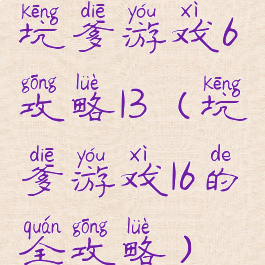 kēng diē yóu xì
坑爹游戏6
gōng lüè kēng
攻略13（坑
diē yóu xì de
爹游戏16的
quán gōng lüè
全攻略）